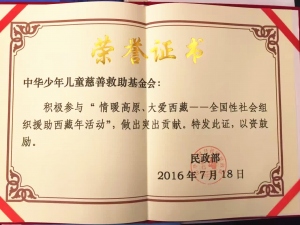 荣誉证书
中华少年儿童慈善救助基金会：
积极参与“情暖高原、大爱西藏——全国性社会组
织援助西藏年活动”，做出突出贡献。特发此证，以资鼓
励。
民政部
2016年7月18日